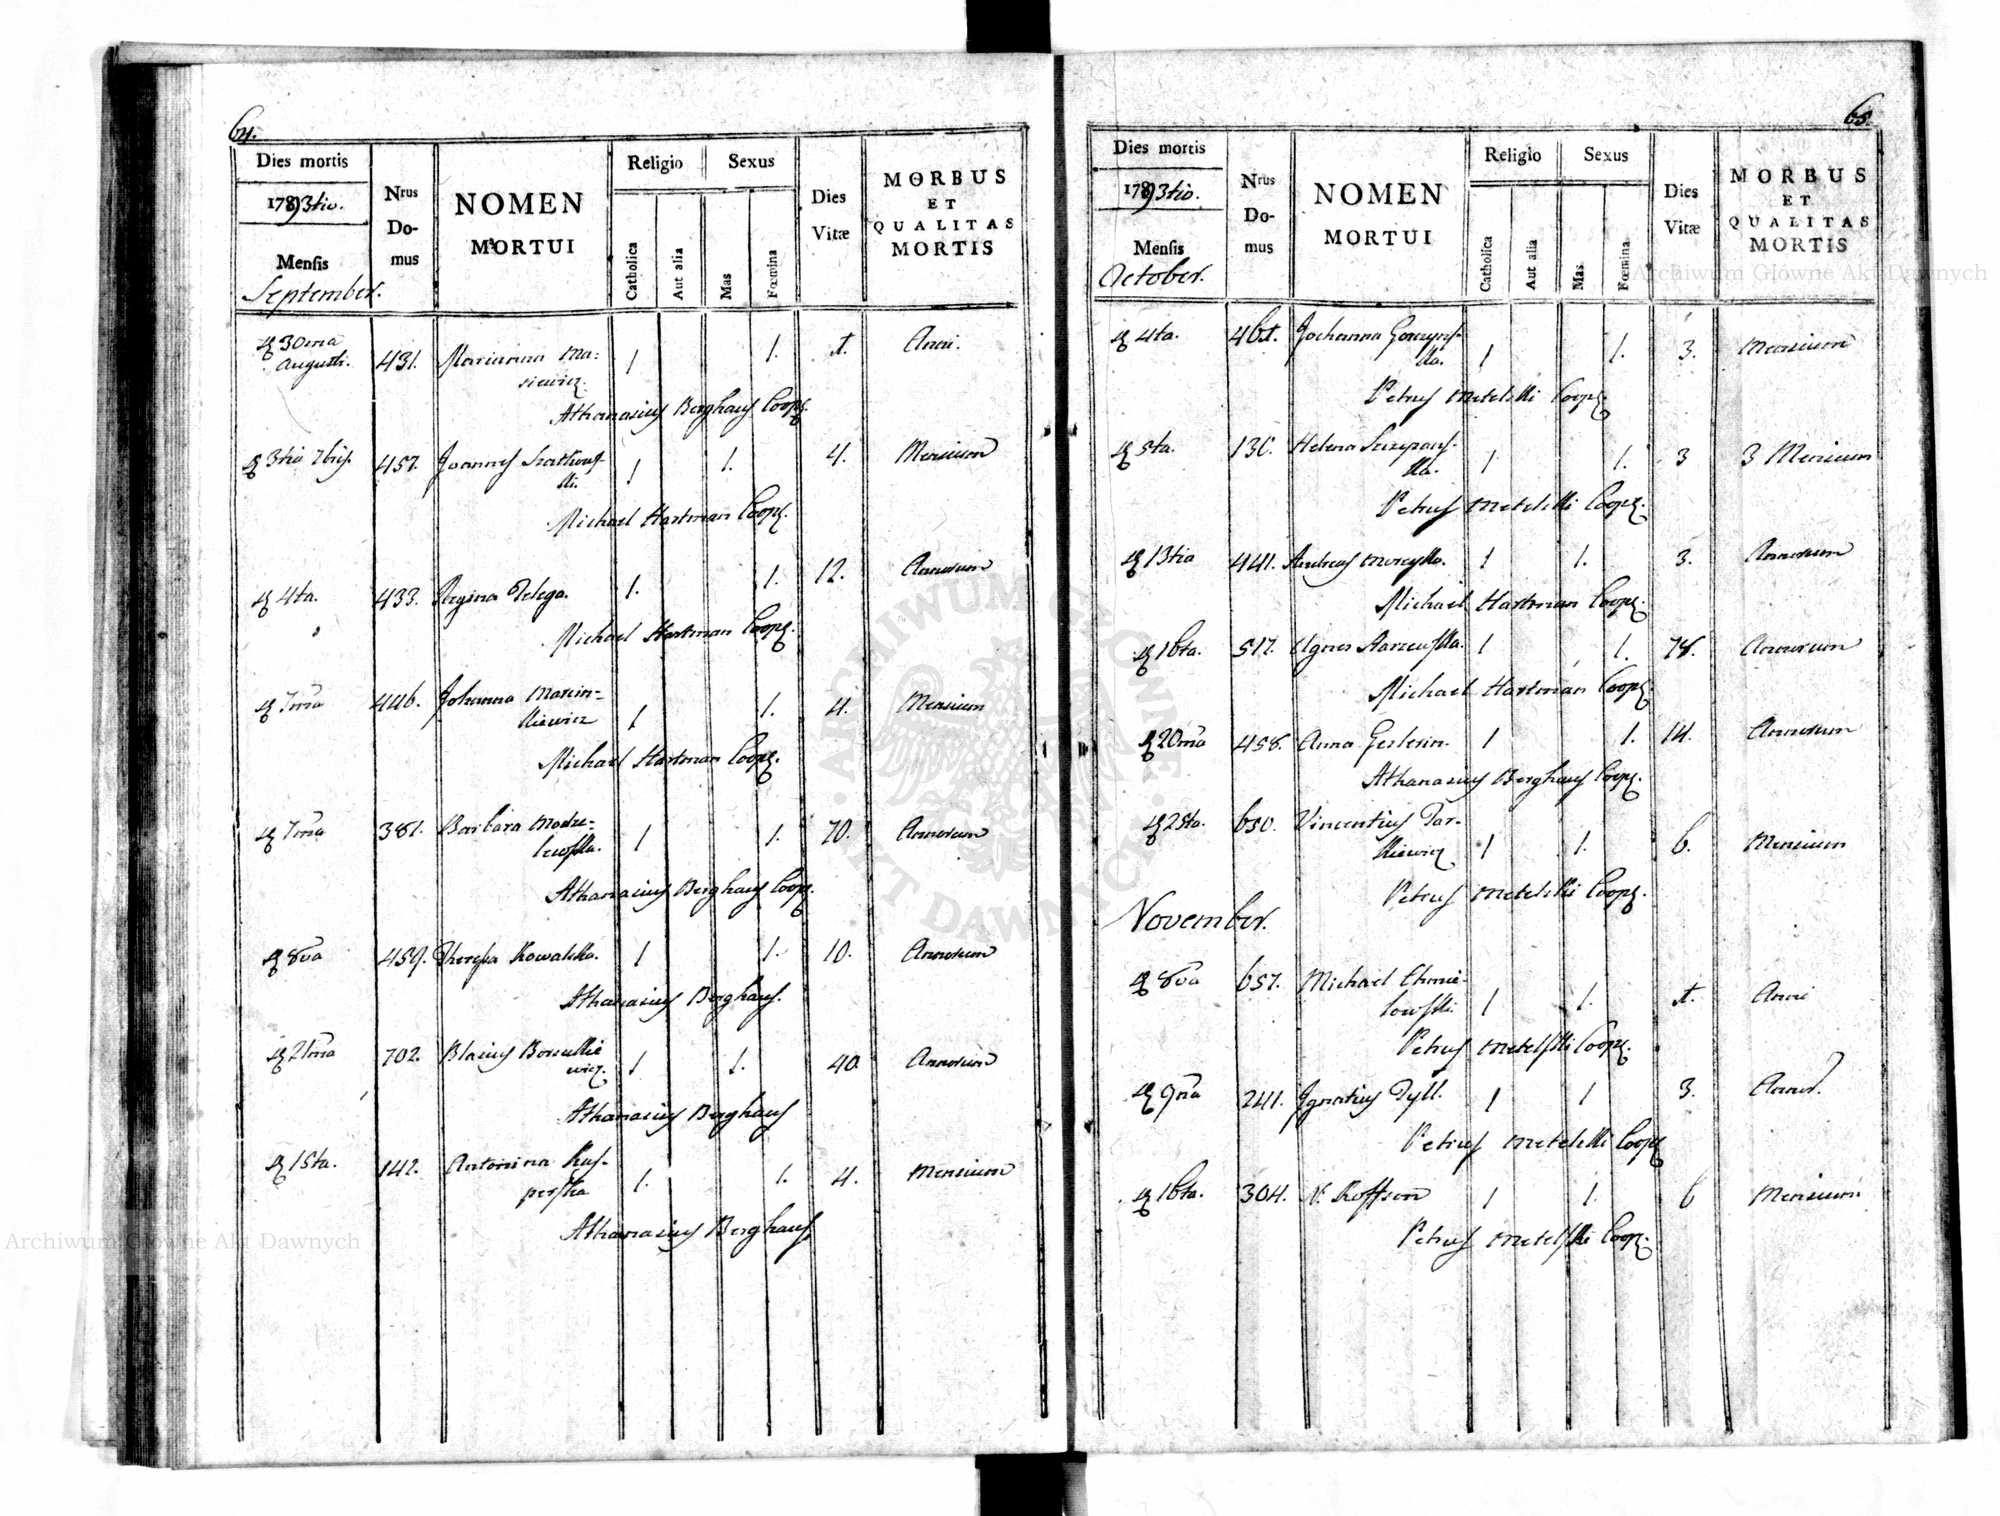 64.
Dies mortis
1793tio.
Mensis
September.
Nrus
Do-
mus
NOMEN
MORTUI
Religio
Sexus
Catholica
Aut alia
Mas
Fœmina
Dies
Vitæ
MORBUS
ET
QUALITAS
MORTIS
30ma
Augusti. 431. Marianna Ma=
siewicz. 1 1. 1. Anni.
Athanasius Berghaus Coop.
3tia 7bris. 457. Joannes
ski. 1 1. 4. Mensium
Michael Hartman Coop.
4ta. 433. Regina Telega. 1. 1. 12. Annorum
Michael Hartman Coop.
7ma 446. Johanna Marcin=
kiewicz 1 1. 4. Mensium
Michael Hartman Coop.
7ma 381. Barbara Modze=
lewska. 1 1. 70. Annorum
Athanasius Berghaus Coop.
8va 459. Theresia Kowalska. 1 1. 10. Annorum
Athanasius Berghaus.
21ma 702. Blasius
wicz. 1 1. 40. Annorum
Athanasius Berghaus
15ta. 142. Antonina Kas-
perska 1. 1. 4. Mensium
Athanasius Berghaus
65.
Dies mortis
1793tio.
Mensis
October.
Nrus
Do-
mus
NOMEN
MORTUI
Religio
Sexus
Catholica
Aut alia
Mas
Fœmina
Dies
Vitæ
MORBUS
ET
QUALITAS
MORTIS
4ta. 461. Johanna
ska. 1 1. 3. Mensium
Petrus Metelski Coop.
5ta. 136. Helena Szczepans-
ka. 1 1. 3 3 Mensium
Petrus Metelski Coop.
13tia 441. Andreas 1 1. 3. Annorum
Michael Hartman Coop.
16ta. 517. Agnes 1 1. 78. Annorum
Michael Hartman Coop.
20ma 458. Anna Geslerin. 1 1. 14. Annorum
Athanasius Berghaus Coop.
25ta. 650. Vincentius Tar-
kiewicz 1 1. 6. Mensium
Petrus Metelski Coop.
November.
8va 657. Michael Chmie-
lowski. 1 1. 1. Anni
Petrus Metelski Coop.
9na 241. Ignatius Tyll. 1 1 3. Annor.
Petrus Metelski Coop
16ta. 304. N. Koffson 1 1. 6 Mensium
Petrus Metelski Coop.
Archiwum Główne Akt Dawnych
Archiwum Główne Akt Dawnych
ARCHIWUM GŁÓWNE · AKT DAWNYCH ·